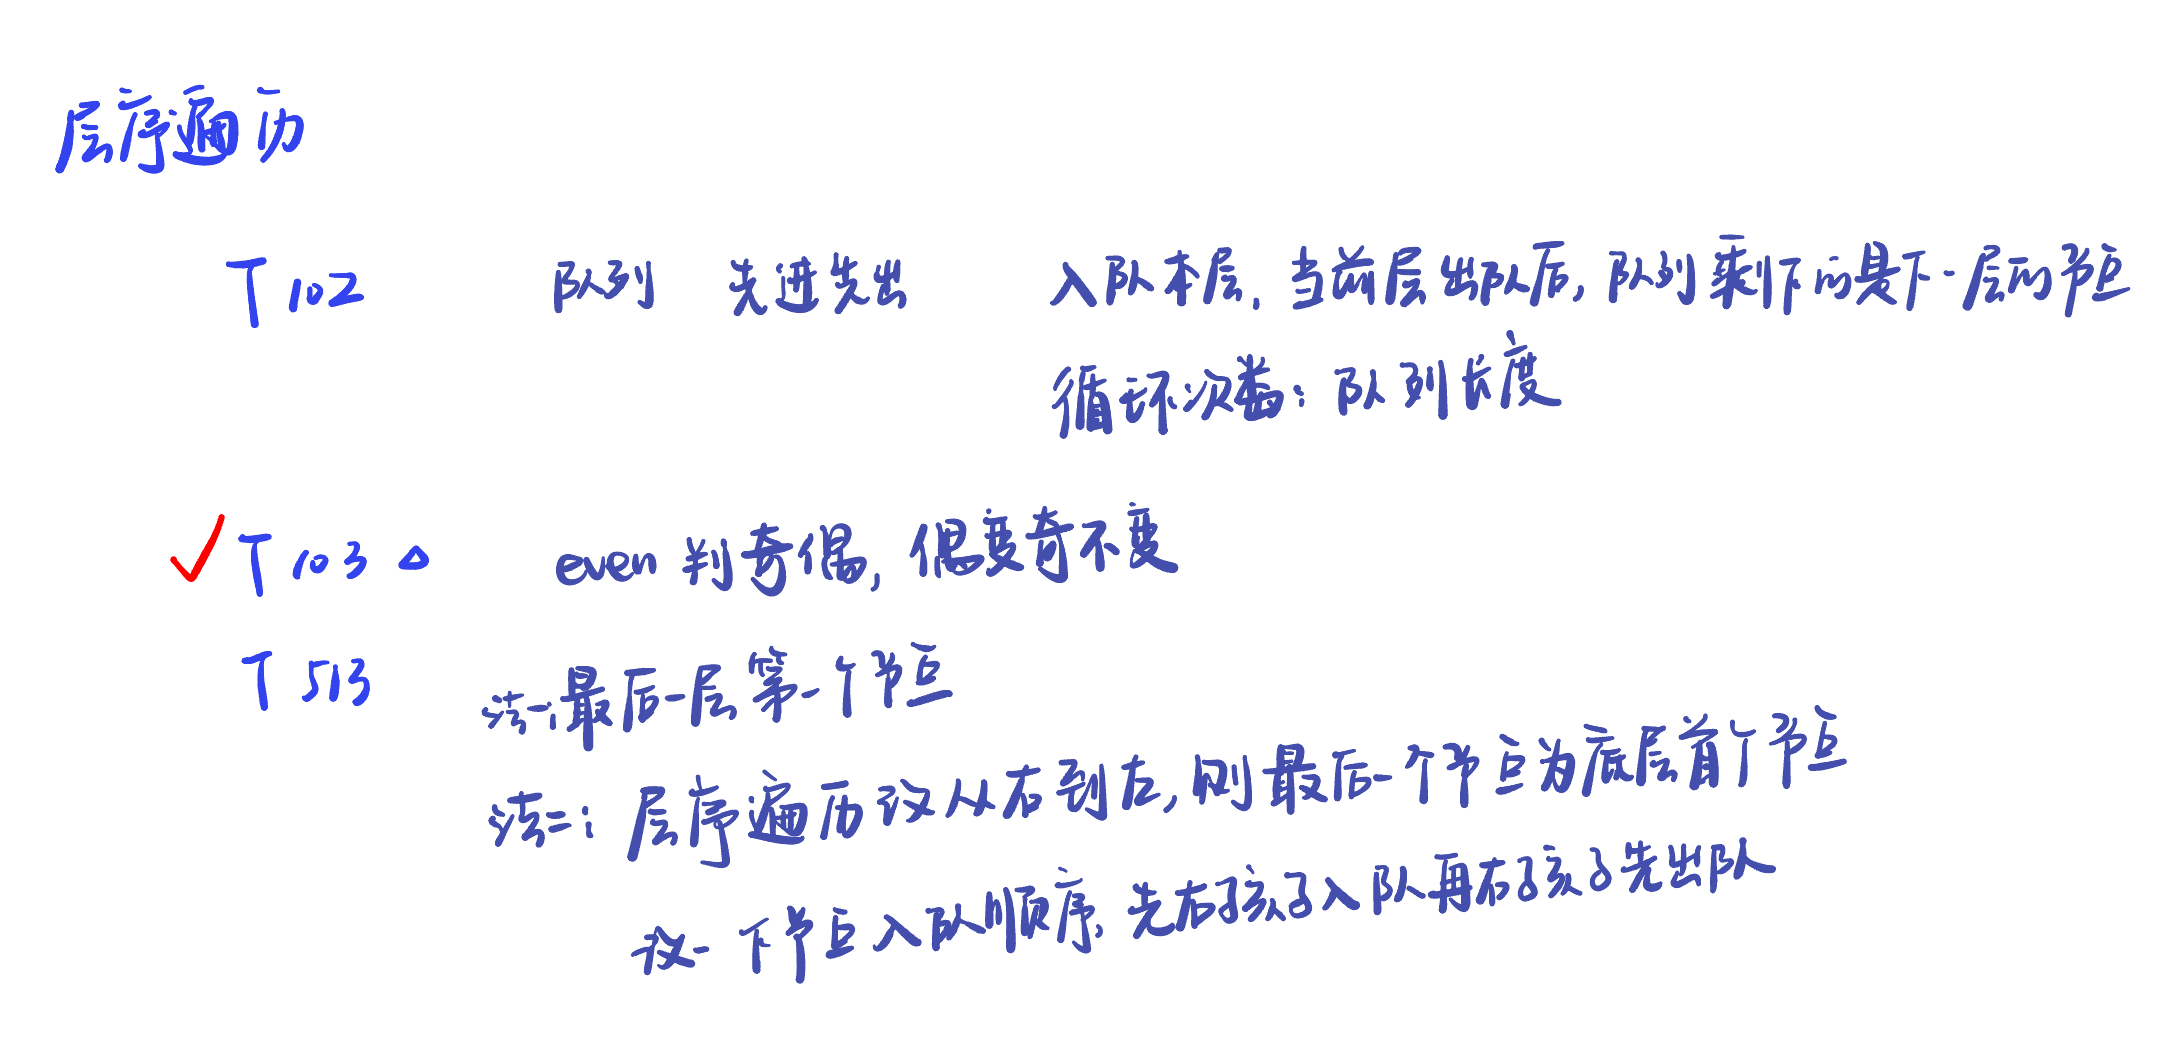 层序遍历
T102 队列 先进先出 入队本层, 当前层出队后, 队列剩下的是下一层的节点
循环次数: 队列长度
T103 △ even 判奇偶, 偶变奇不变
T513 法一:最后一层第一个节点
法二: 层序遍历改从右到左, 则最后一个节点为底层首个节点
改一下节点入队顺序, 先右孩子入队再右孩子先出队